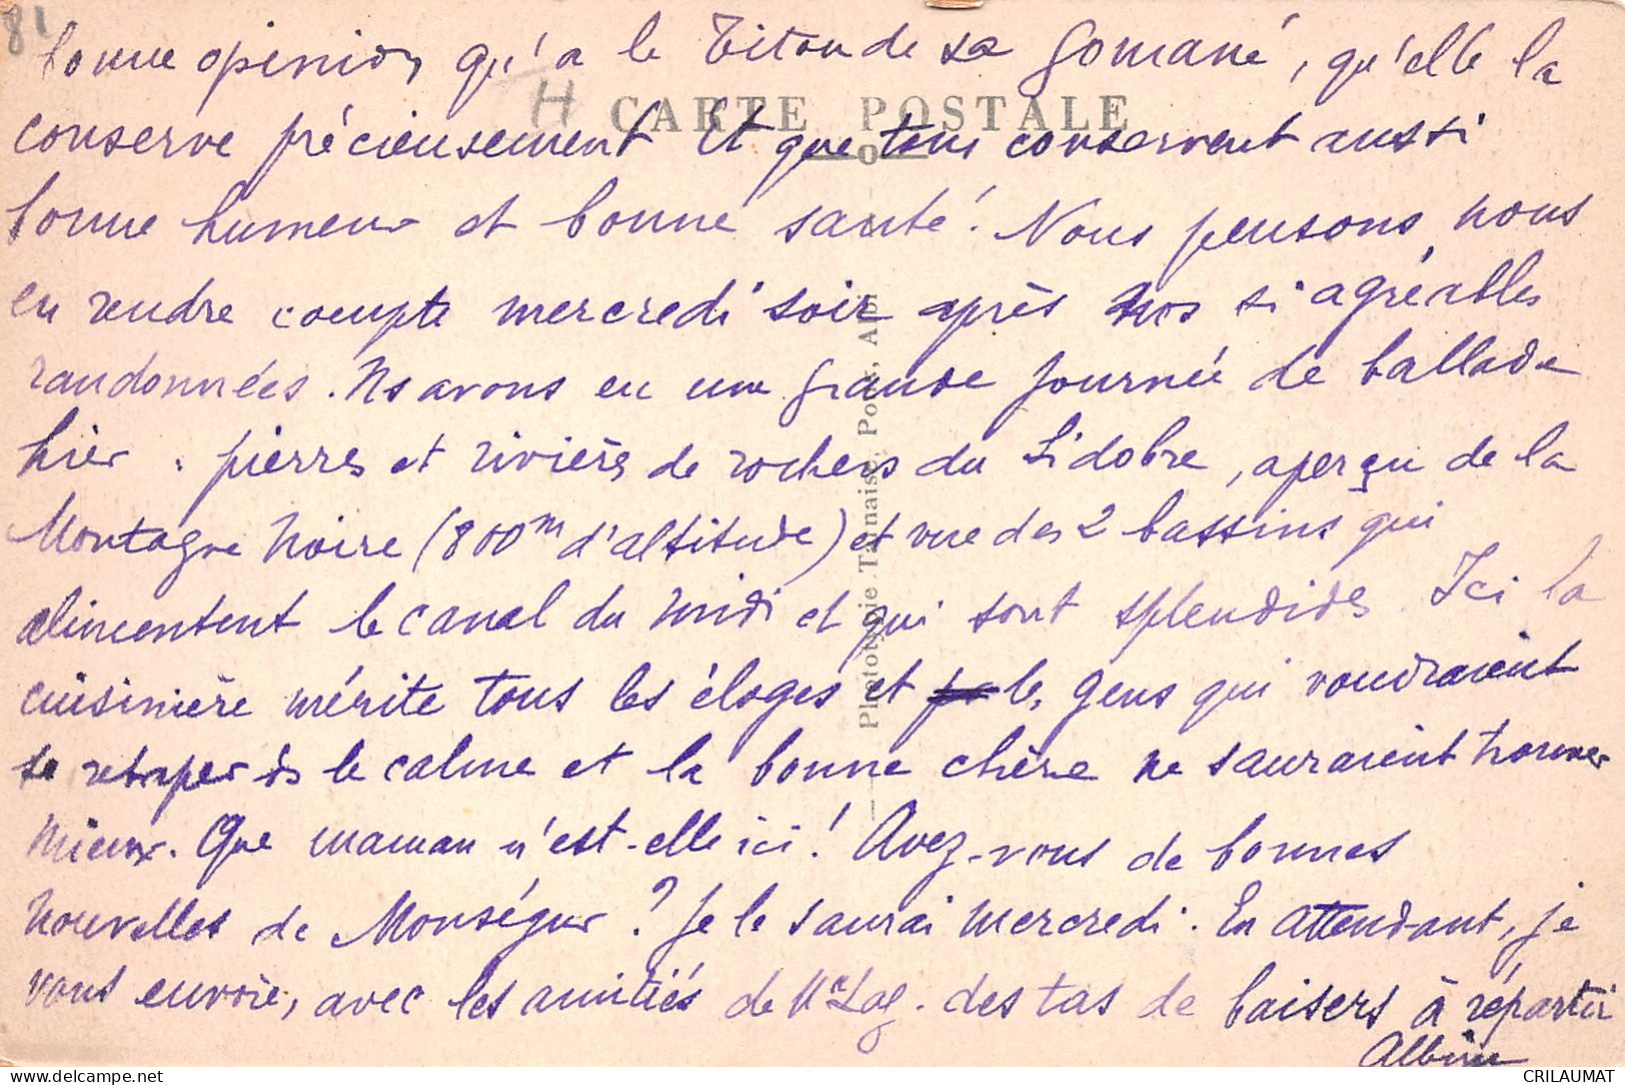 81
bonne opinion qu'a le Titou de sa Gomané, qu'elle la
H CARTE POSTALE
conserve précieusement Et que tous conservent aussi
bonne humeur et bonne santé! Nous pensons nous
en rendre compte mercredi soir après nos si agréables
randonnées. Ns avons eu une grande journée de ballade
hier : pierres et rivière de rochers du Sidobre, aperçu de la
Montagne Noire (800m d'altitude) et vue des 2 bassins qui
alimentent le canal du midi et qui sont splendides. Ici la
cuisinière mérite tous les éloges et les gens qui voudraient
se retaper ds le calme et la bonne chère ne sauraient trouver
mieux. Que maman n'est-elle ici! Avez-vous de bonnes
nouvelles de Monségur? Je le saurai mercredi. En attendant, je
vous envoie, avec les amitiés de Lag. des tas de baisers à répartir
Albine
Phototypie Tarnaise, Poux, Albi
CRILAUMAT